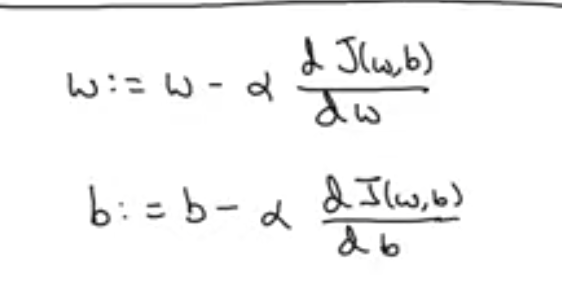 w := w - α dJ(w,b)/dw
b := b - α dJ(w,b)/db